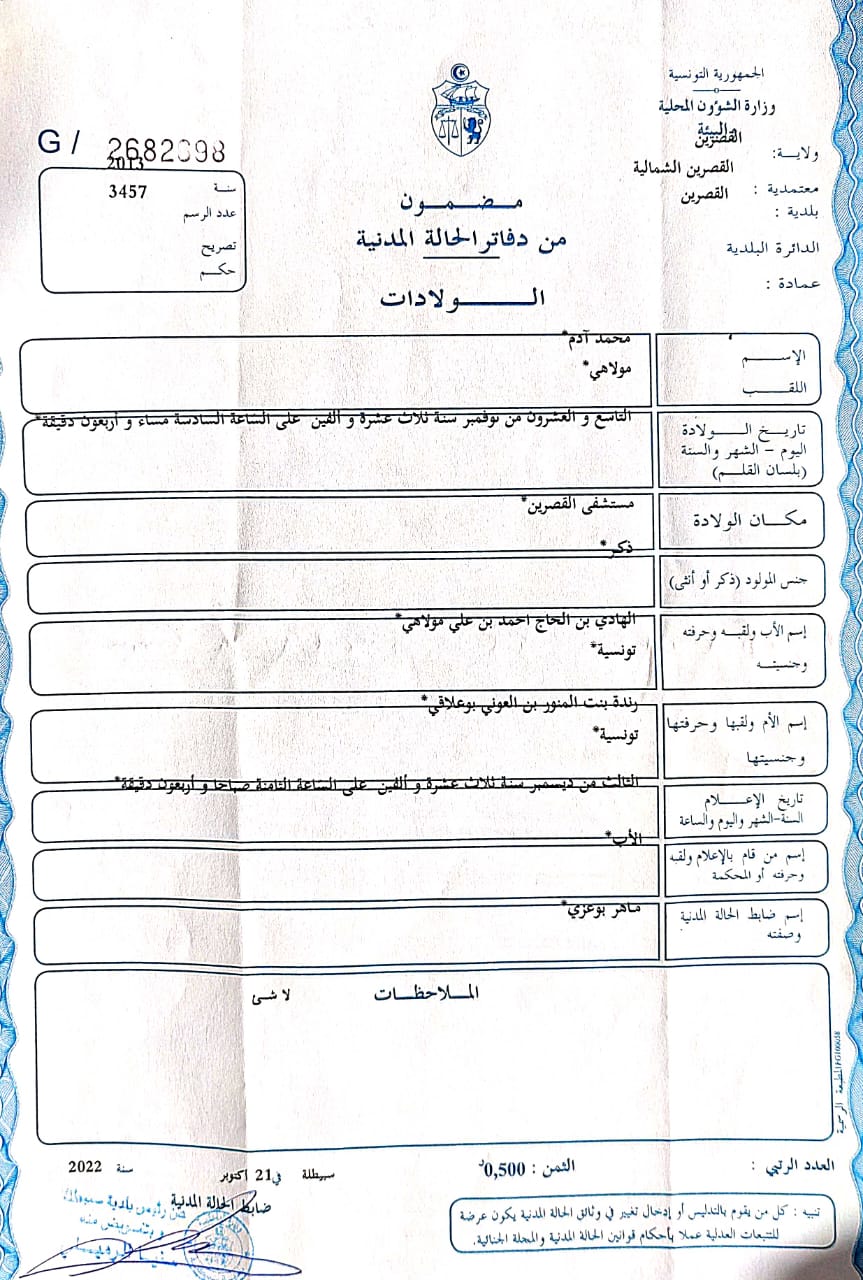 الجمهورية التونسية
وزارة الشؤون المحلية
والبيئة
ولاية: القصرين
معتمدية : القصرين الشمالية
بلدية : القصرين
الدائرة البلدية
عمادة :
G / 2682398
سنة 2013
عدد الرسم 3457
تصريح
حكم
مضمون
من دفاتر الحالة المدنية
الولادات
الإسم محمد آدم*
اللقب مولاهي*
تاريخ الولادة
اليوم - الشهر والسنة
(بلسان القلم)
التاسع و العشرون من نوفمبر سنة ثلاث عشرة و ألفين على الساعة السادسة مساء و أربعون دقيقة*
مكان الولادة مستشفى القصرين*
جنس المولود (ذكر أو أنثى) ذكر*
إسم الأب ولقبه وحرفته
وجنسيته
الهادي بن الحاج احمد بن علي مولاهي*
تونسية*
إسم الأم ولقبها وحرفتها
وجنسيتها
رندة بنت المنور بن العوني بوعلاقي*
تونسية*
تاريخ الإعلام
السنة-الشهر واليوم والساعة
الثالث من ديسمبر سنة ثلاث عشرة و ألفين على الساعة الثامنة صباحا و أربعون دقيقة*
إسم من قام بالإعلام ولقبه
وحرفته أو المحكمة
الأب*
إسم ضابط الحالة المدنية
وصفته
ماهر بوعزي*
الملاحظات لا شى
العدد الرتبي :
الثمن : 0,500د
سبيطلة في 21 اكتوبر سنة 2022
ضابط الحالة المدنية
تنبيه : كل من يقوم بالتدليس أو إدخال تغيير في وثائق الحالة المدنية يكون عرضة
للتبعات العدلية عملا بأحكام قوانين الحالة المدنية والمجلة الجنائية.